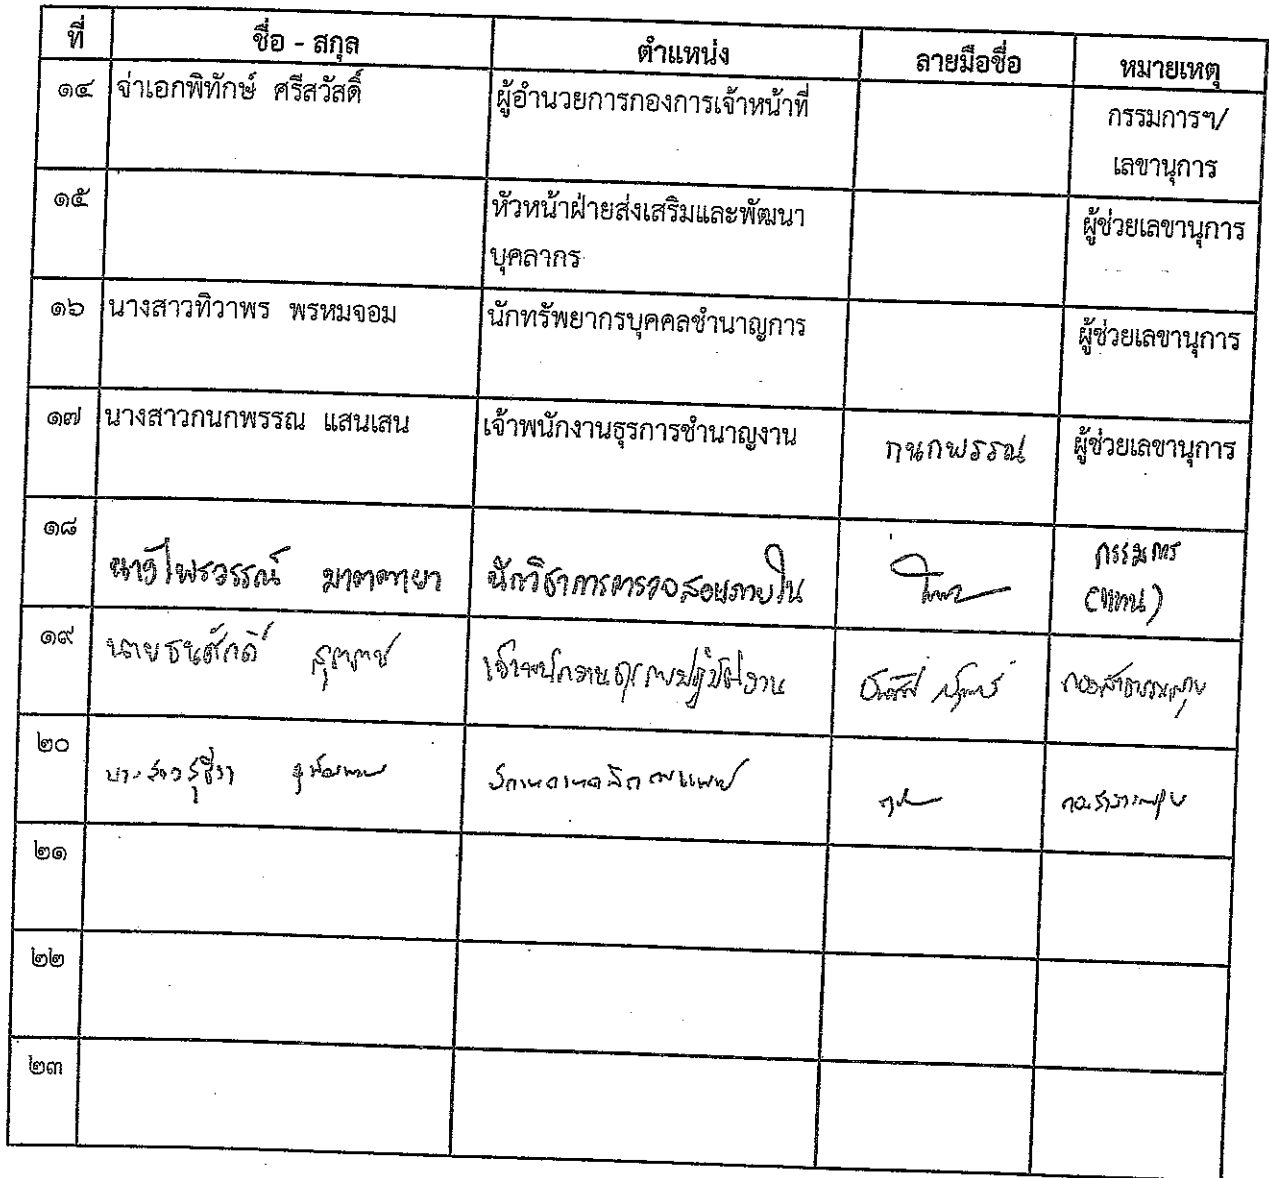 ที่ ชื่อ - สกุล ตำแหน่ง ลายมือชื่อ หมายเหตุ
๑๔ จ่าเอกพิทักษ์ ศรีสวัสดิ์ ผู้อำนวยการกองการเจ้าหน้าที่ กรรมการฯ/
เลขานุการ
๑๕ หัวหน้าฝ่ายส่งเสริมและพัฒนา ผู้ช่วยเลขานุการ
บุคลากร
๑๖ นางสาวทิวาพร พรหมจอม นักทรัพยากรบุคคลชำนาญการ ผู้ช่วยเลขานุการ
๑๗ นางสาวกนกพรรณ แสนเสน เจ้าพนักงานธุรการชำนาญงาน กนกพรรณ ผู้ช่วยเลขานุการ
๑๘ นางไพรวรรณ์ มาตตายา นักวิชาการตรวจสอบภายใน กรรมการ
(แทน)
๑๙ นายธนศักดิ์ กองสาธารณสุข
๒๐
๒๑
๒๒
๒๓